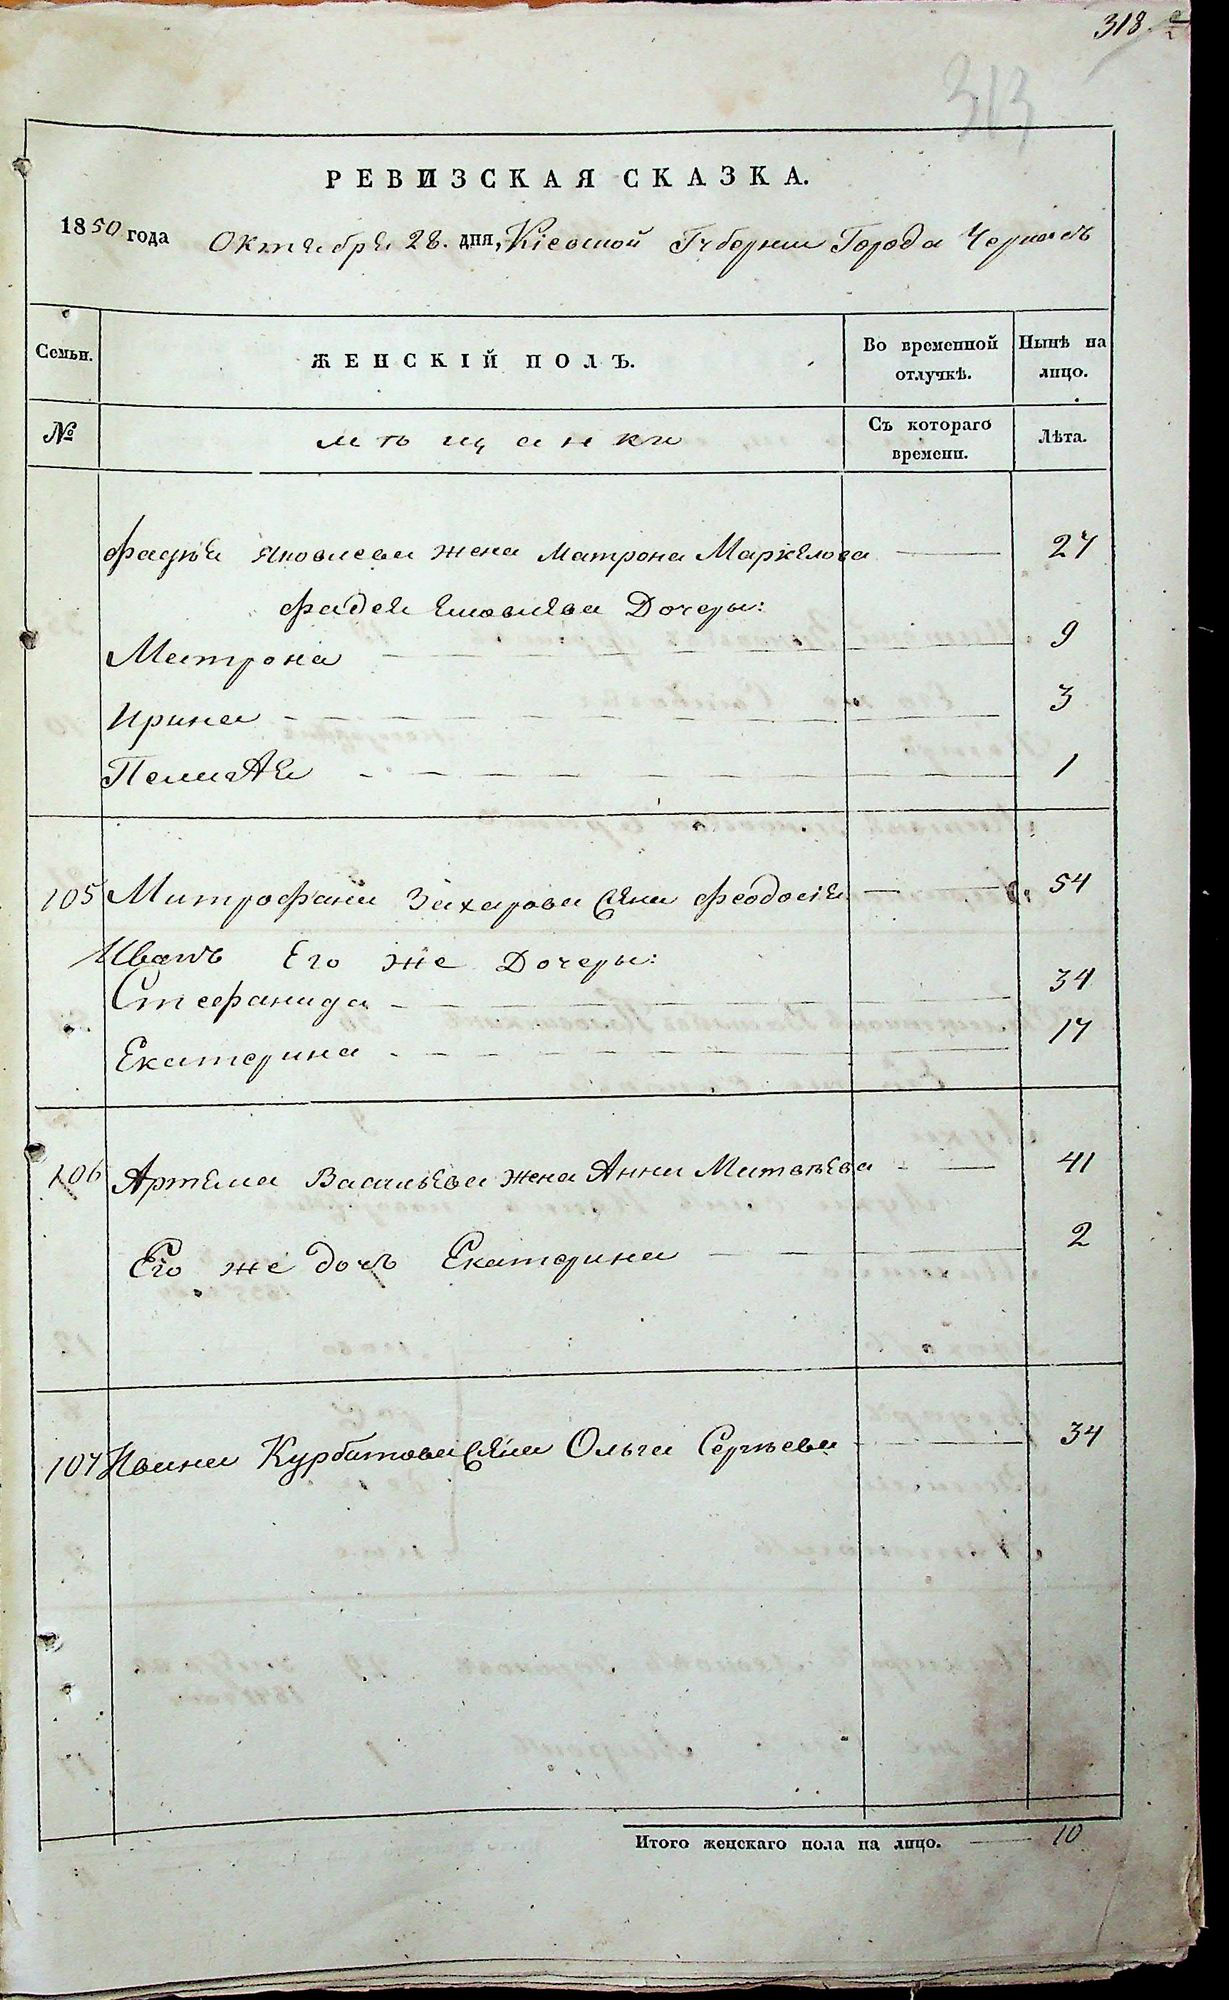 318.
313
РЕВИЗСКАЯ СКАЗКА.
1850 года Октября 28. дня, Кіевской Губернии Города Черкасъ
Семьи. ЖЕНСКІЙ ПОЛЪ. Во временной отлучкѣ. Нынѣ на лицо.
№ мѣщанки Съ котораго времени. Лѣта.
Фадѣя Яковлева жена Матрона Маркелова 27
Фадея Яковлева Дочеры:
Матрона 9
Ирина 3
Пелагея 1
105 Митрофана Захарова жена Феодосія 54
Его же Дочеры:
Стефанида 34
Екатерина 17
106 Артема Васильева жена Анна Матвѣева 41
Его же дочь Екатерина 2
107 Ивана Курбатова жена Ольга Сергѣева 34
Итого женскаго пола на лицо. 10